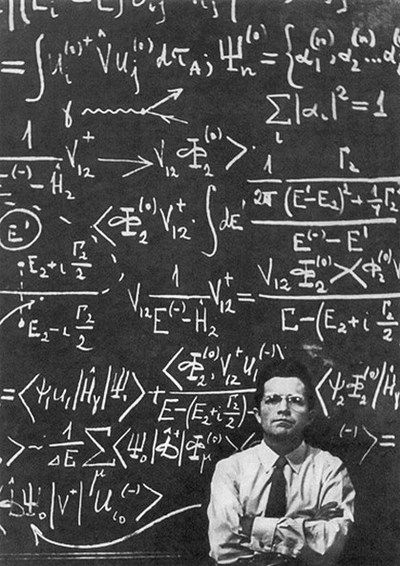 = ∫ u_i^{(0)+} V̂ u_j^{(0)} dτ_A ; Ψ_n^{(0)} = { α_1^{(n)}, α_2^{(n)} ... α
γ
∑_i |α_i|² = 1
1 / E^{(-)} - Ĥ_2 V_{12}^+ → V_{12} Φ_2^{(0)} > ·
1/2π Γ_2 / (E' - E_2)² + ¼Γ_2² / E^{(-)} - E'
E' < Φ_2^{(0)} V_{12}^+ · ∫ dE'
E_2 + i Γ_2/2
E_2 - i Γ_2/2
V_{12} 1 / E^{(-)} - Ĥ_2 V_{12}^+ = V_{12} Φ_2^{(0)} > < Φ_2^{(0)} V / E - (E_2 + i Γ_2/2
= < Ψ_1 u_1 | Ĥ_γ | Ψ_i > + < Φ_2^{(0)}, V_{12}^+ u_1^{(-)} / E - (E_2 + i Γ_2/2) - < Ψ_2 Φ_2^{(0)} | Ĥ_γ
> ~ 1/ΔE ∑_μ < Ψ_0 | D̂^+ | Φ_μ^{(0)} < ^{(-)} > =
D̂ Ψ_0 | V^+ | u_{i_0}^{(-)} >